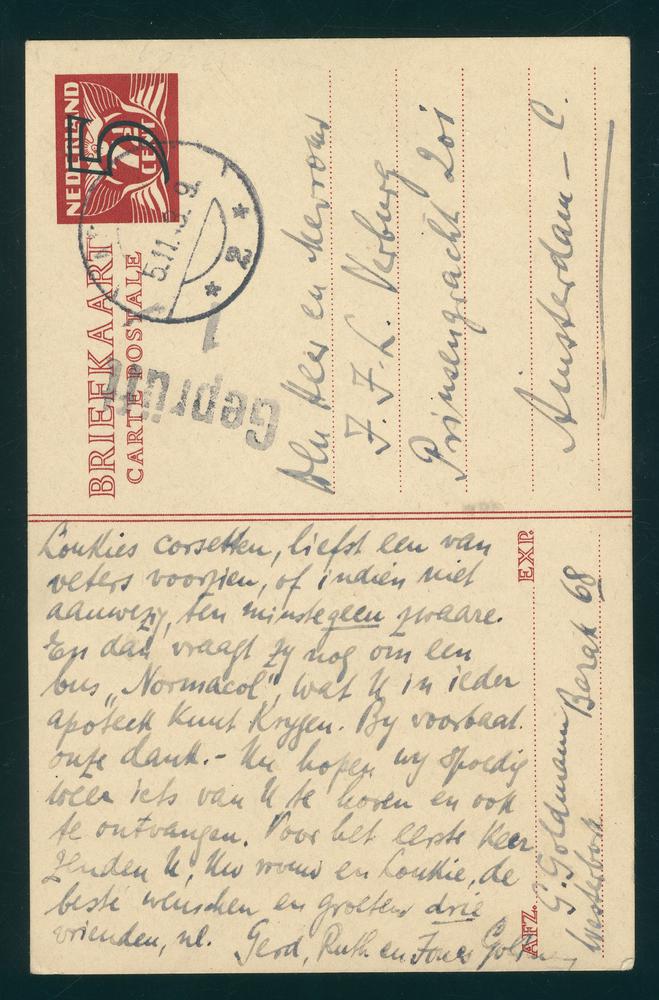 NEDERLAND
7½ CENT
5
5.11.
9.
2
BRIEFKAART
CARTE POSTALE
Geprüft
1
Den Heer en Mevrouw
J. F. L. Verburg
Prinsengracht 201
Amsterdam - C.
AFZ. EXP.
G. Goldmann Barak 68
Westerbork
Loukies corsetten, liefst een van
veters voorzien, of indien niet
aanwezig, ten minste geen zwaare.
En dan vraagt zy nog om een
bus „Normacol", wat U in ieder
apoteek kunt krygen. By voorbaat
onze dank. - Nu hopen wy spoedig
weer iets van U te horen en ook
te ontvangen. Voor het eerste keer
zenden U, Uw vrouw en Loukie, de
beste wenschen en groeten drie
vrienden, nl. Gerd, Ruth en